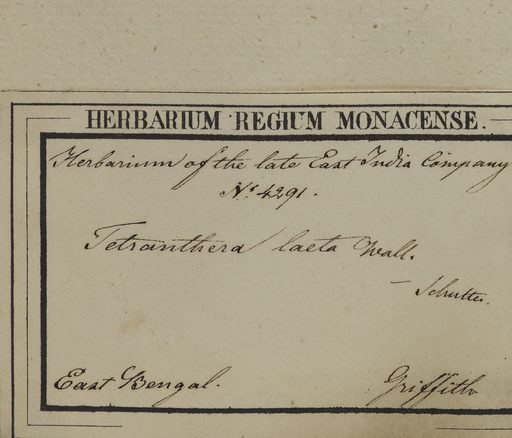 HERBARIUM REGIUM MONACENSE.
Herbarium of the late East India Company
No. 4291.
Tetranthera laeta Wall.
— Schultes.
East Bengal.
Griffith